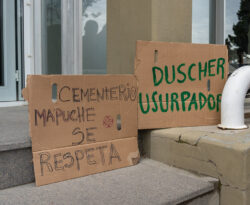 CEMENTERIO
MAPUCHE
SE
RESPETA
DUSCHER
USURPADOR